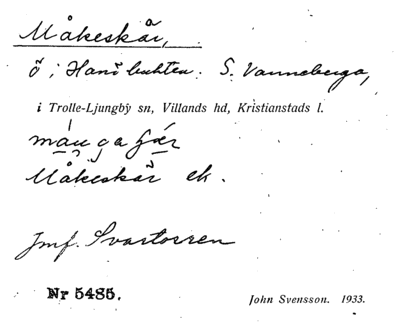 Måkeskär,
ö i Hanöbukten. S. Vanneberga,
i Trolle-Ljungby sn, Villands hd, Kristianstads l.
Måkeskär ek.
Jmf. Svartorren
Nr 5485.
John Svensson. 1933.